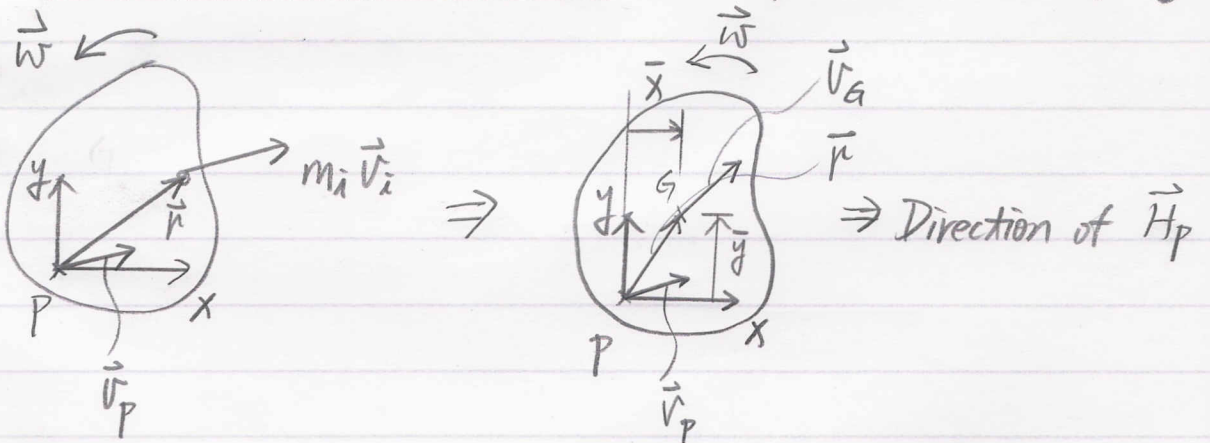 w⃗
y
r⃗
m_i v⃗_i
P
x
v⃗_p
⇒
w⃗
x̄
v⃗_G
r̄
G
y
ȳ
P
x
v⃗_p
⇒ Direction of H⃗_p